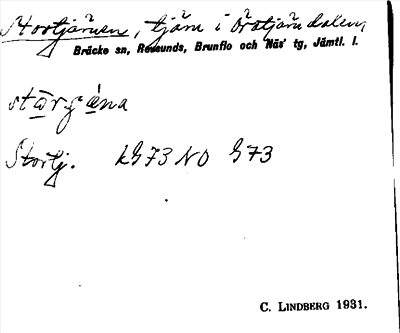 Stortjärnen, tjärn i Öråtjärndalen,
Bräcke sn, Revsunds, Brunflo och Näs' tg, Jämtl. l.
stārgána
Stortj. LG73 NO G73
C. LINDBERG 1931.